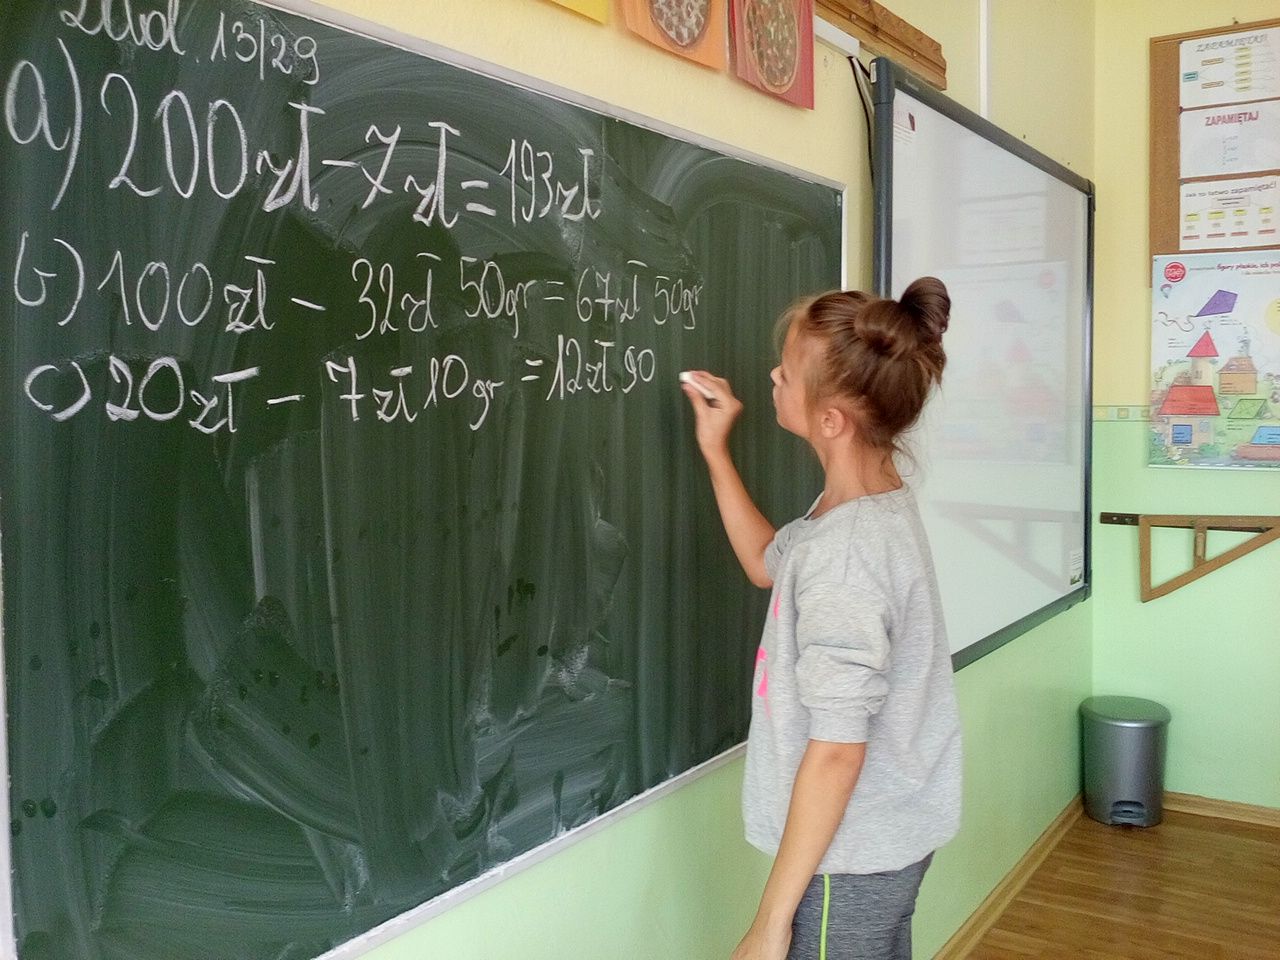 Zad 13/29
a) 200zł - 7zł = 193zł
b) 100zł - 32zł 50gr = 67zł 50gr
c) 20zł - 7zł 10gr = 12zł 90
ZAPAMIĘTAJ!
ZAPAMIĘTAJ
Jak to łatwo zapamiętać!
figury płaskie, ich pol